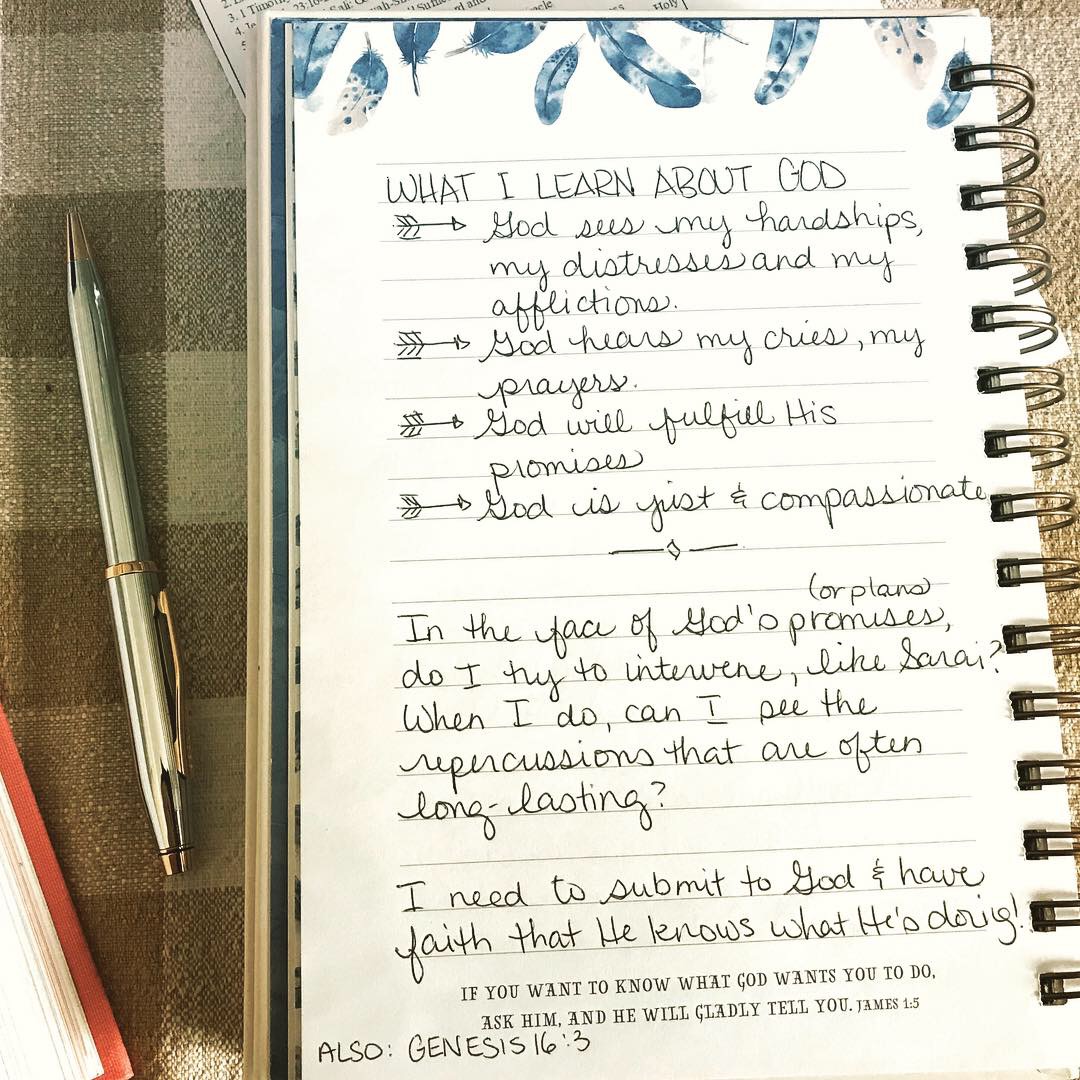 3. 1 Timothy
Holy
WHAT I LEARN ABOUT GOD
God sees my hardships,
my distresses and my
afflictions.
God hears my cries, my
prayers.
God will fulfill His
promises
God is just & compassionate
(or plans)
In the face of God's promises,
do I try to intervene, like Sarai?
When I do, can I see the
repercussions that are often
long-lasting?
I need to submit to God & have
faith that He knows what He's doing!
IF YOU WANT TO KNOW WHAT GOD WANTS YOU TO DO,
ASK HIM, AND HE WILL GLADLY TELL YOU. JAMES 1:5
ALSO: GENESIS 16:3